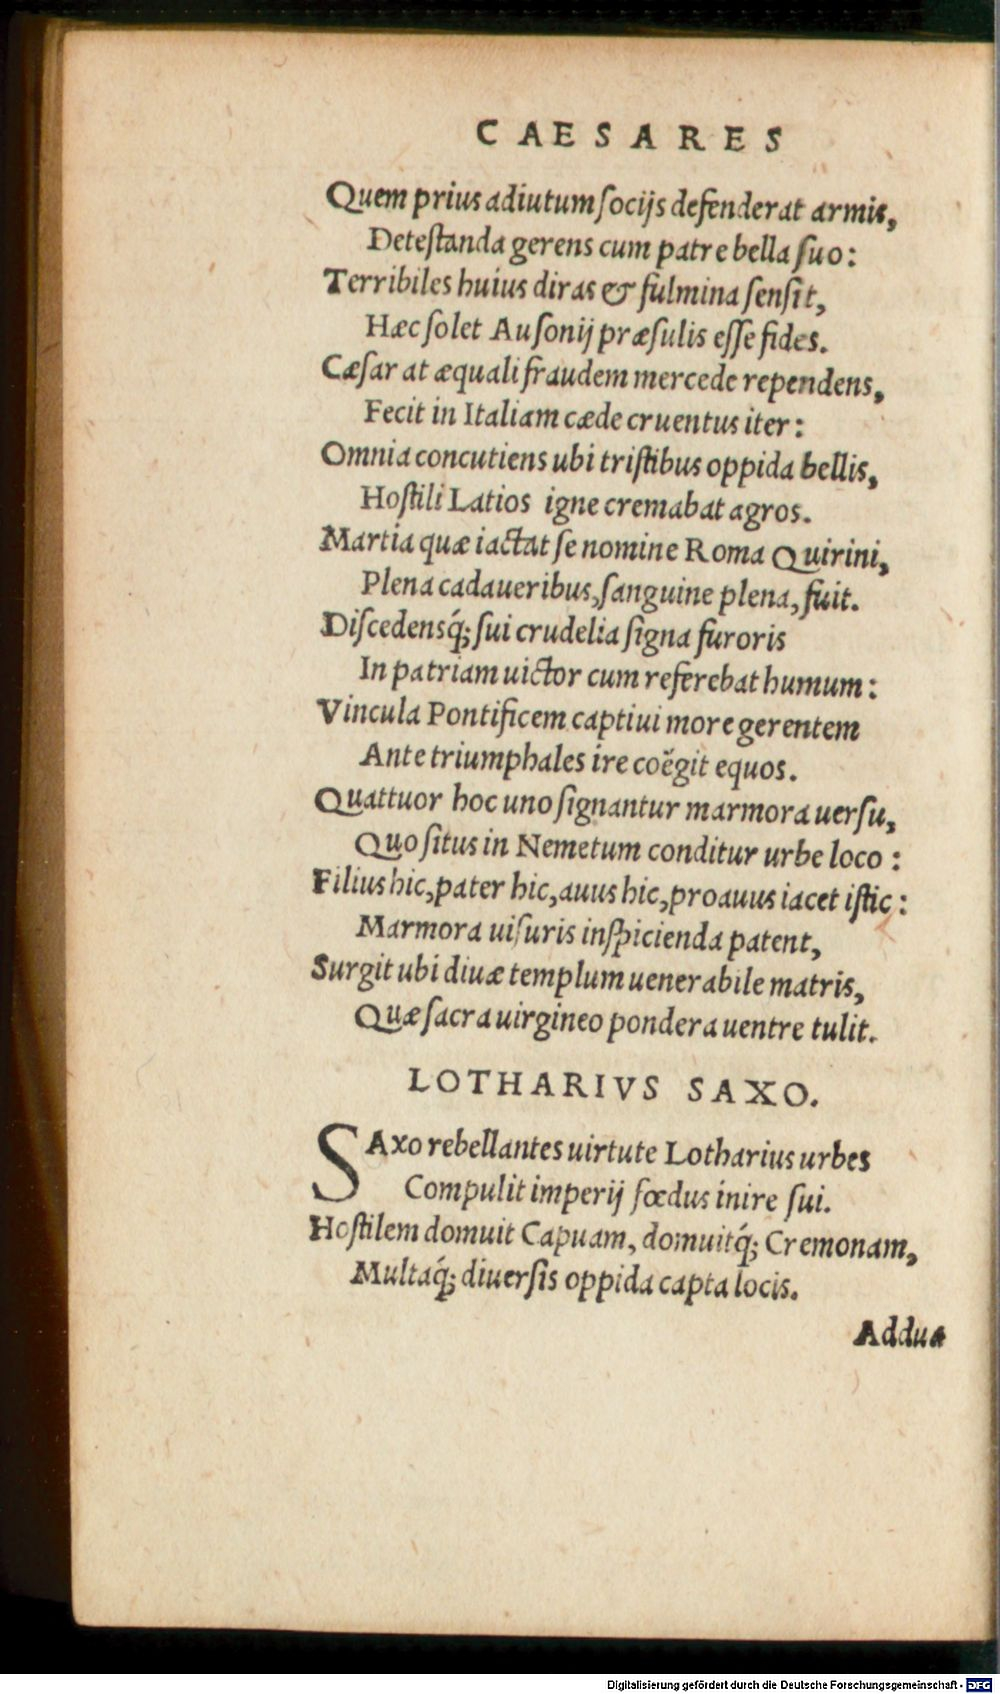 CAESARES
Quem prius adiutum ſocijs defenderat armis,
Deteſtanda gerens cum patre bella ſuo:
Terribiles huius diras & fulmina ſenſit,
Hæc ſolet Auſonij præſulis eſſe fides.
Cæſar at æquali fraudem mercede rependens,
Fecit in Italiam cæde cruentus iter:
Omnia concutiens ubi triſtibus oppida bellis,
Hoſtili Latios igne cremabat agros.
Martia quæ iactat ſe nomine Roma Quirini,
Plena cadaueribus, ſanguine plena, fuit.
Diſcedensq́; ſui crudelia ſigna furoris
In patriam uictor cum referebat humum:
Vincula Pontificem captiui more gerentem
Ante triumphales ire coëgit equos.
Quattuor hoc uno ſignantur marmora uerſu,
Quo ſitus in Nemetum conditur urbe loco:
Filius hic, pater hic, auus hic, proauus iacet iſtic:
Marmora uiſuris inſpicienda patent,
Surgit ubi diuæ templum uenerabile matris,
Quæ ſacra uirgineo pondera uentre tulit.
LOTHARIVS SAXO.
SAxo rebellantes uirtute Lotharius urbes
Compulit imperij fœdus inire ſui.
Hoſtilem domuit Capuam, domuitq́; Cremonam,
Multaq́; diuerſis oppida capta locis.
Addua
Digitalisierung gefördert durch die Deutsche Forschungsgemeinschaft - DFG